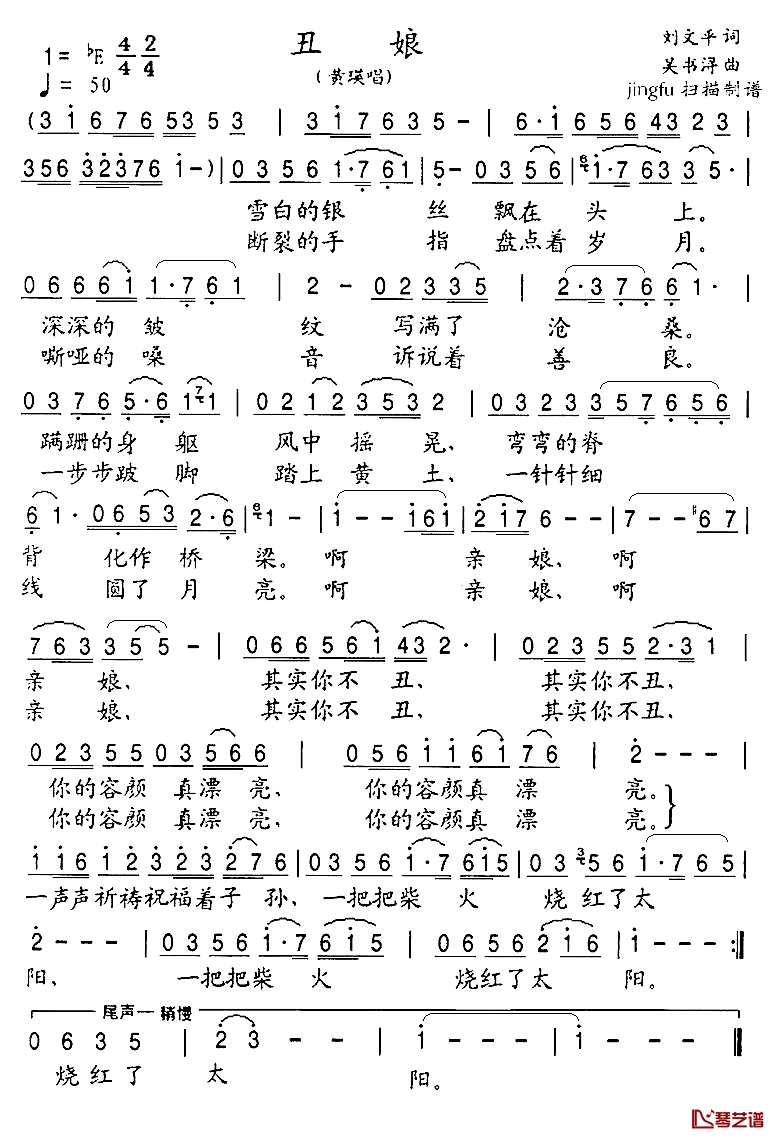 1=♭E 4/4 2/4
丑 娘
刘文平 词
♩=50
(黄瑛唱)
吴书浔 曲
jingfu 扫描制谱
(3 1 6 7 6 53 5 3 | 3 1 7 6 5 3 5 - | 6·1 6 5 6 4 3 2 3 |
3 5 6 3 2 3 7 6 1 -) | 0 3 5 6 1·7 6 1 | 5 - 0 3 5 6 | 6 1·7 6 3 3 5· |
雪白的银 丝 飘在 头 上。
断裂的手 指 盘点着岁 月。
0 6 6 6 1 1·7 6 1 | 2 - 0 2 3 3 5 | 2·3 7 6 6 1· |
深深的 皱 纹 写满了 沧 桑。
嘶哑的 嗓 音 诉说着 善 良。
0 3 7 6 5·6 1 7 1 | 0 2 1 2 3 5 3 2 | 0 3 2 3 3 5 7 6 5 6 |
蹒跚的身 躯 风中 摇 晃、 弯弯的脊
一步步跛 脚 踏上 黄 土、 一针针细
6 1· 0 6 5 3 2·6 | 6 1 - | 1 - - 1 6 1 | 2 1 7 6 - - | 7 - - #6 7 |
背 化作 桥 梁。啊 亲 娘、 啊
线 圆了 月 亮。啊 亲 娘、 啊
7 6 3 3 5 5 - | 0 6 6 5 6 1 4 3 2· | 0 2 3 5 5 2·3 1 |
亲 娘、 其实你不 丑、 其实你不丑、
亲 娘、 其实你不 丑、 其实你不丑、
0 2 3 5 5 0 3 5 6 6 | 0 5 6 1 1 6 1 7 6 | 2 - - - |
你的容颜 真漂 亮、 你的容颜真 漂 亮。
你的容颜 真漂 亮、 你的容颜真 漂 亮。
1 1 6 1 2 3 2 3 2·7 6 | 0 3 5 6 1·7 6 1 5 | 0 3 3 5 6 1·7 6 5 |
一声声祈祷祝福着子 孙、一把把柴 火 烧红了太
2 - - - | 0 3 5 6 1·7 6 1 5 | 0 6 5 6 2 1 6 | 2 - - - :‖
阳、 一把把柴 火 烧红了太 阳。
尾声—稍慢
0 6 3 5 | 2 3 - | 2 - - - | 1 - - - | 1 - - - ‖
烧红了 太 阳。
琴艺谱